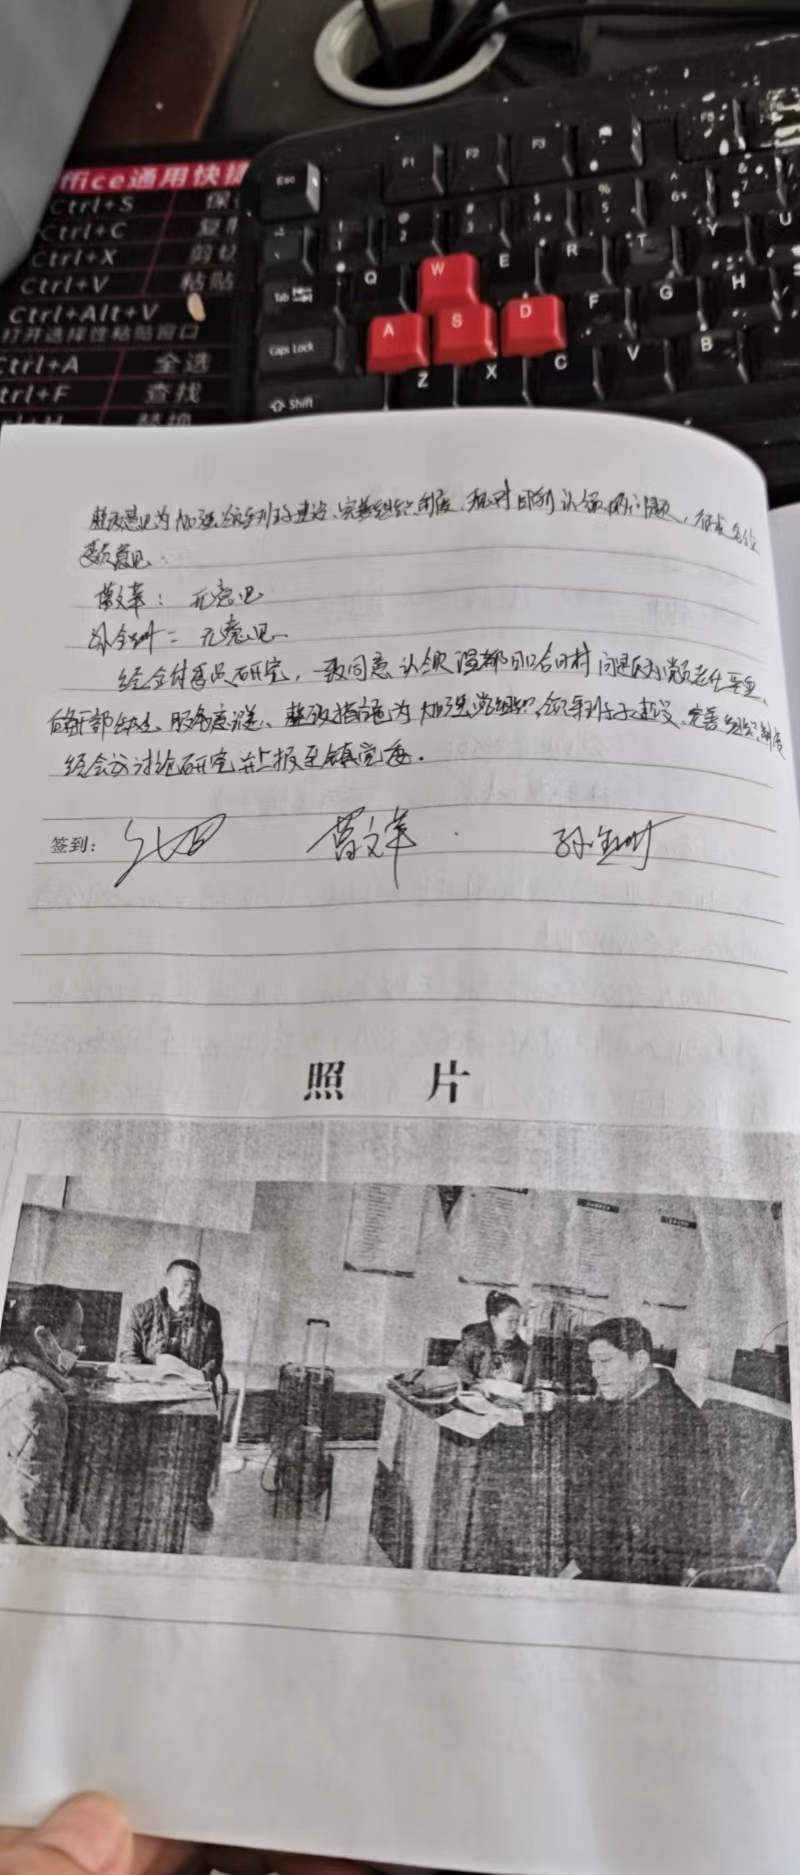 ffice通用快捷
Ctrl+S 保
Ctrl+C 复制
Ctrl+X 剪切
Ctrl+V 粘贴
Ctrl+Alt+V
打开选择性粘贴窗口
Ctrl+A 全选
trl+F 查找
替换
Esc F1 F2 F3
! 1 @ 2 # 3 $ 4 % 5 ^ 6 & 7
Tab Q W E R T Y U
Caps Lock A S D F G H
Shift Z X C V B
整改意见为加强领导班子建设、完善组织制度,现对 认领 问题,征求各位
委员意见:
曹文革:无意见
孙金树:无意见
经全体委员研究,一致同意认领 村问题 党员老化严重、
服务意识差、整改措施为加强党组织领导班子建设、完善组织制度
经会议讨论研究并上报至镇党委。
签到: 曹文革 孙金树
照 片